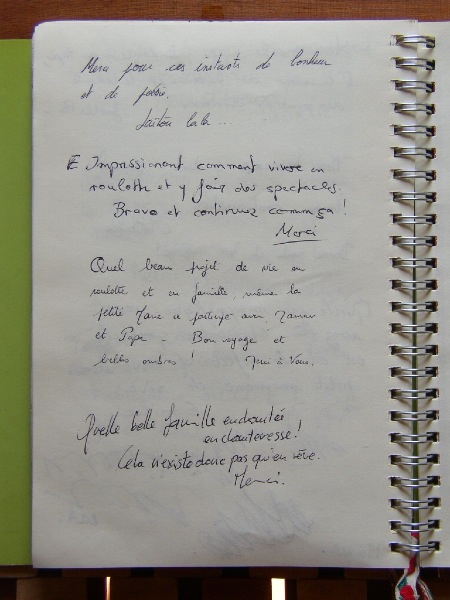 Merci pour ces instants de bonheur
et de poésie.
lala ...
Impressionent comment vivre en
roulotte et y faire des spectacles.
Bravo et continuez comme ça !
Merci
Quel beau projet de vie en
roulotte et en famille, même la
petite a participé avec Maman
et Papa - Bon voyage et
belles ombres ! Merci à Vous.
Quelle belle famille enchantée
enchanteresse !
Cela n'existe donc pas qu'en rêve.
Merci.